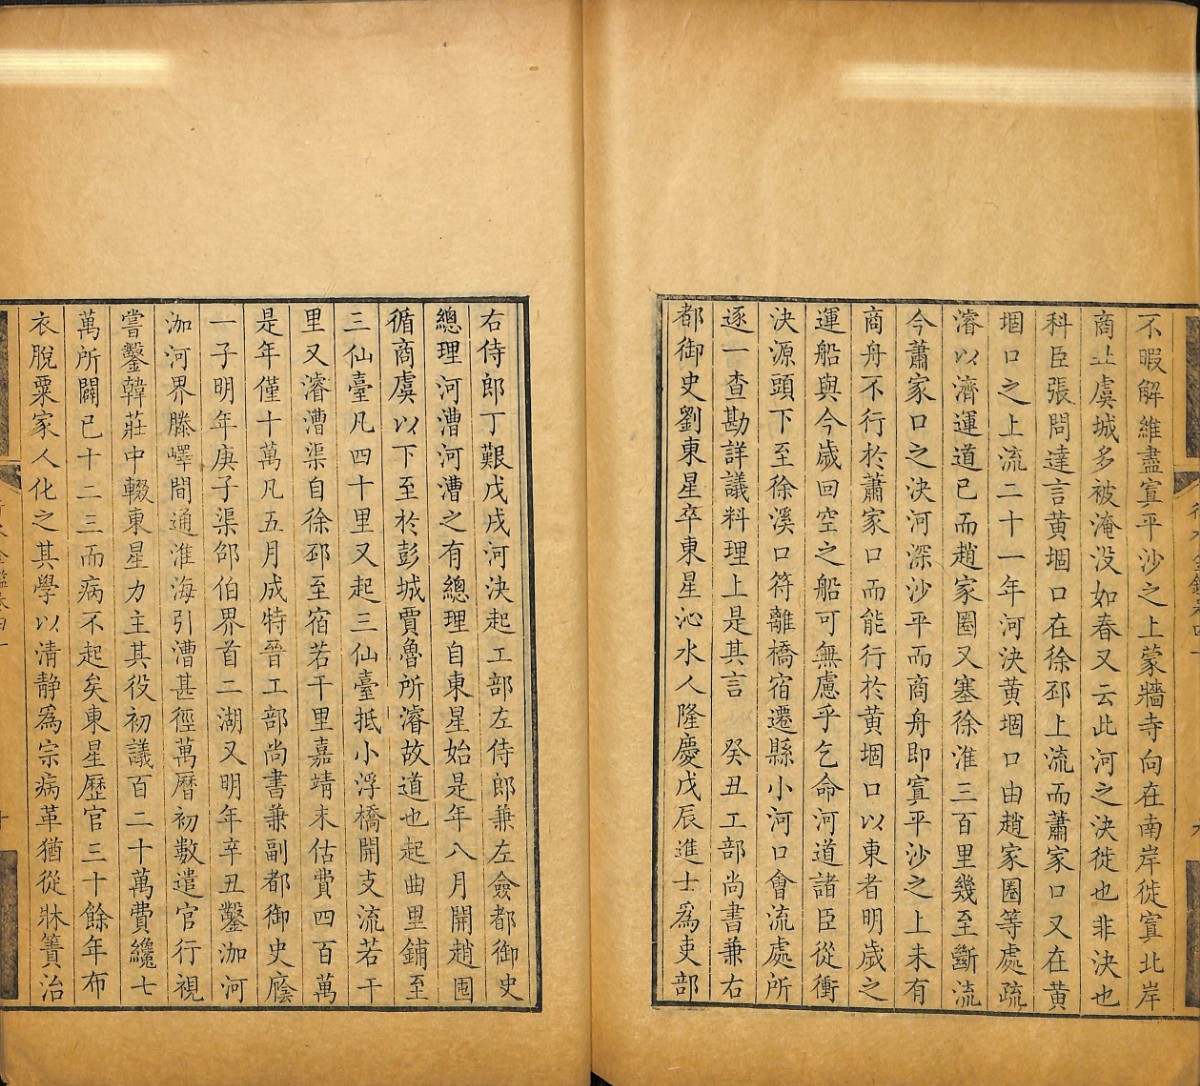 不暇解維盡寘平沙之上蒙牆寺向在南岸徙寘北岸
商丘虞城多被淹没如春又云此河之決徙也非決也
科臣張問達言黄堌口在徐邳上流而蕭家口又在黄
堌口之上流二十一年河決黄堌口由趙家圈等處疏
濬以濟運道已而趙家圈又塞徐淮三百里幾至斷流
今蕭家口之決河深沙平而商舟即寘平沙之上未有
商舟不行於蕭家口而能行於黄堌口以東者明歲之
運船與今歲回空之船可無慮乎乞命河道諸臣從衝
決源頭下至徐溪口符離橋宿遷縣小河口會流處所
逐一查勘詳議料理上是其言 癸丑工部尚書兼右
都御史劉東星卒東星沁水人隆慶戊辰進士爲吏部
右侍郎丁艱戊戌河決起工部左侍郎兼左僉都御史
總理河漕河漕之有總理自東星始是年八月開趙囤
循商虞以下至於彭城賈魯所濬故道也起曲里鋪至
三仙臺凡四十里又起三仙臺抵小浮橋開支流若干
里又濬漕渠自徐邳至宿若干里嘉靖末估費四百萬
是年僅十萬凡五月成特晉工部尚書兼副都御史廕
一子明年庚子渠邵伯界首二湖又明年辛丑鑿泇河
泇河界滕嶧間通淮海引漕甚徑萬曆初數遣官行視
嘗鑿韓莊中輟東星力主其役初議百二十萬費纔七
萬所闢已十二三而病不起矣東星歷官三十餘年布
衣脫粟家人化之其學以清靜爲宗病革猶從牀簀治